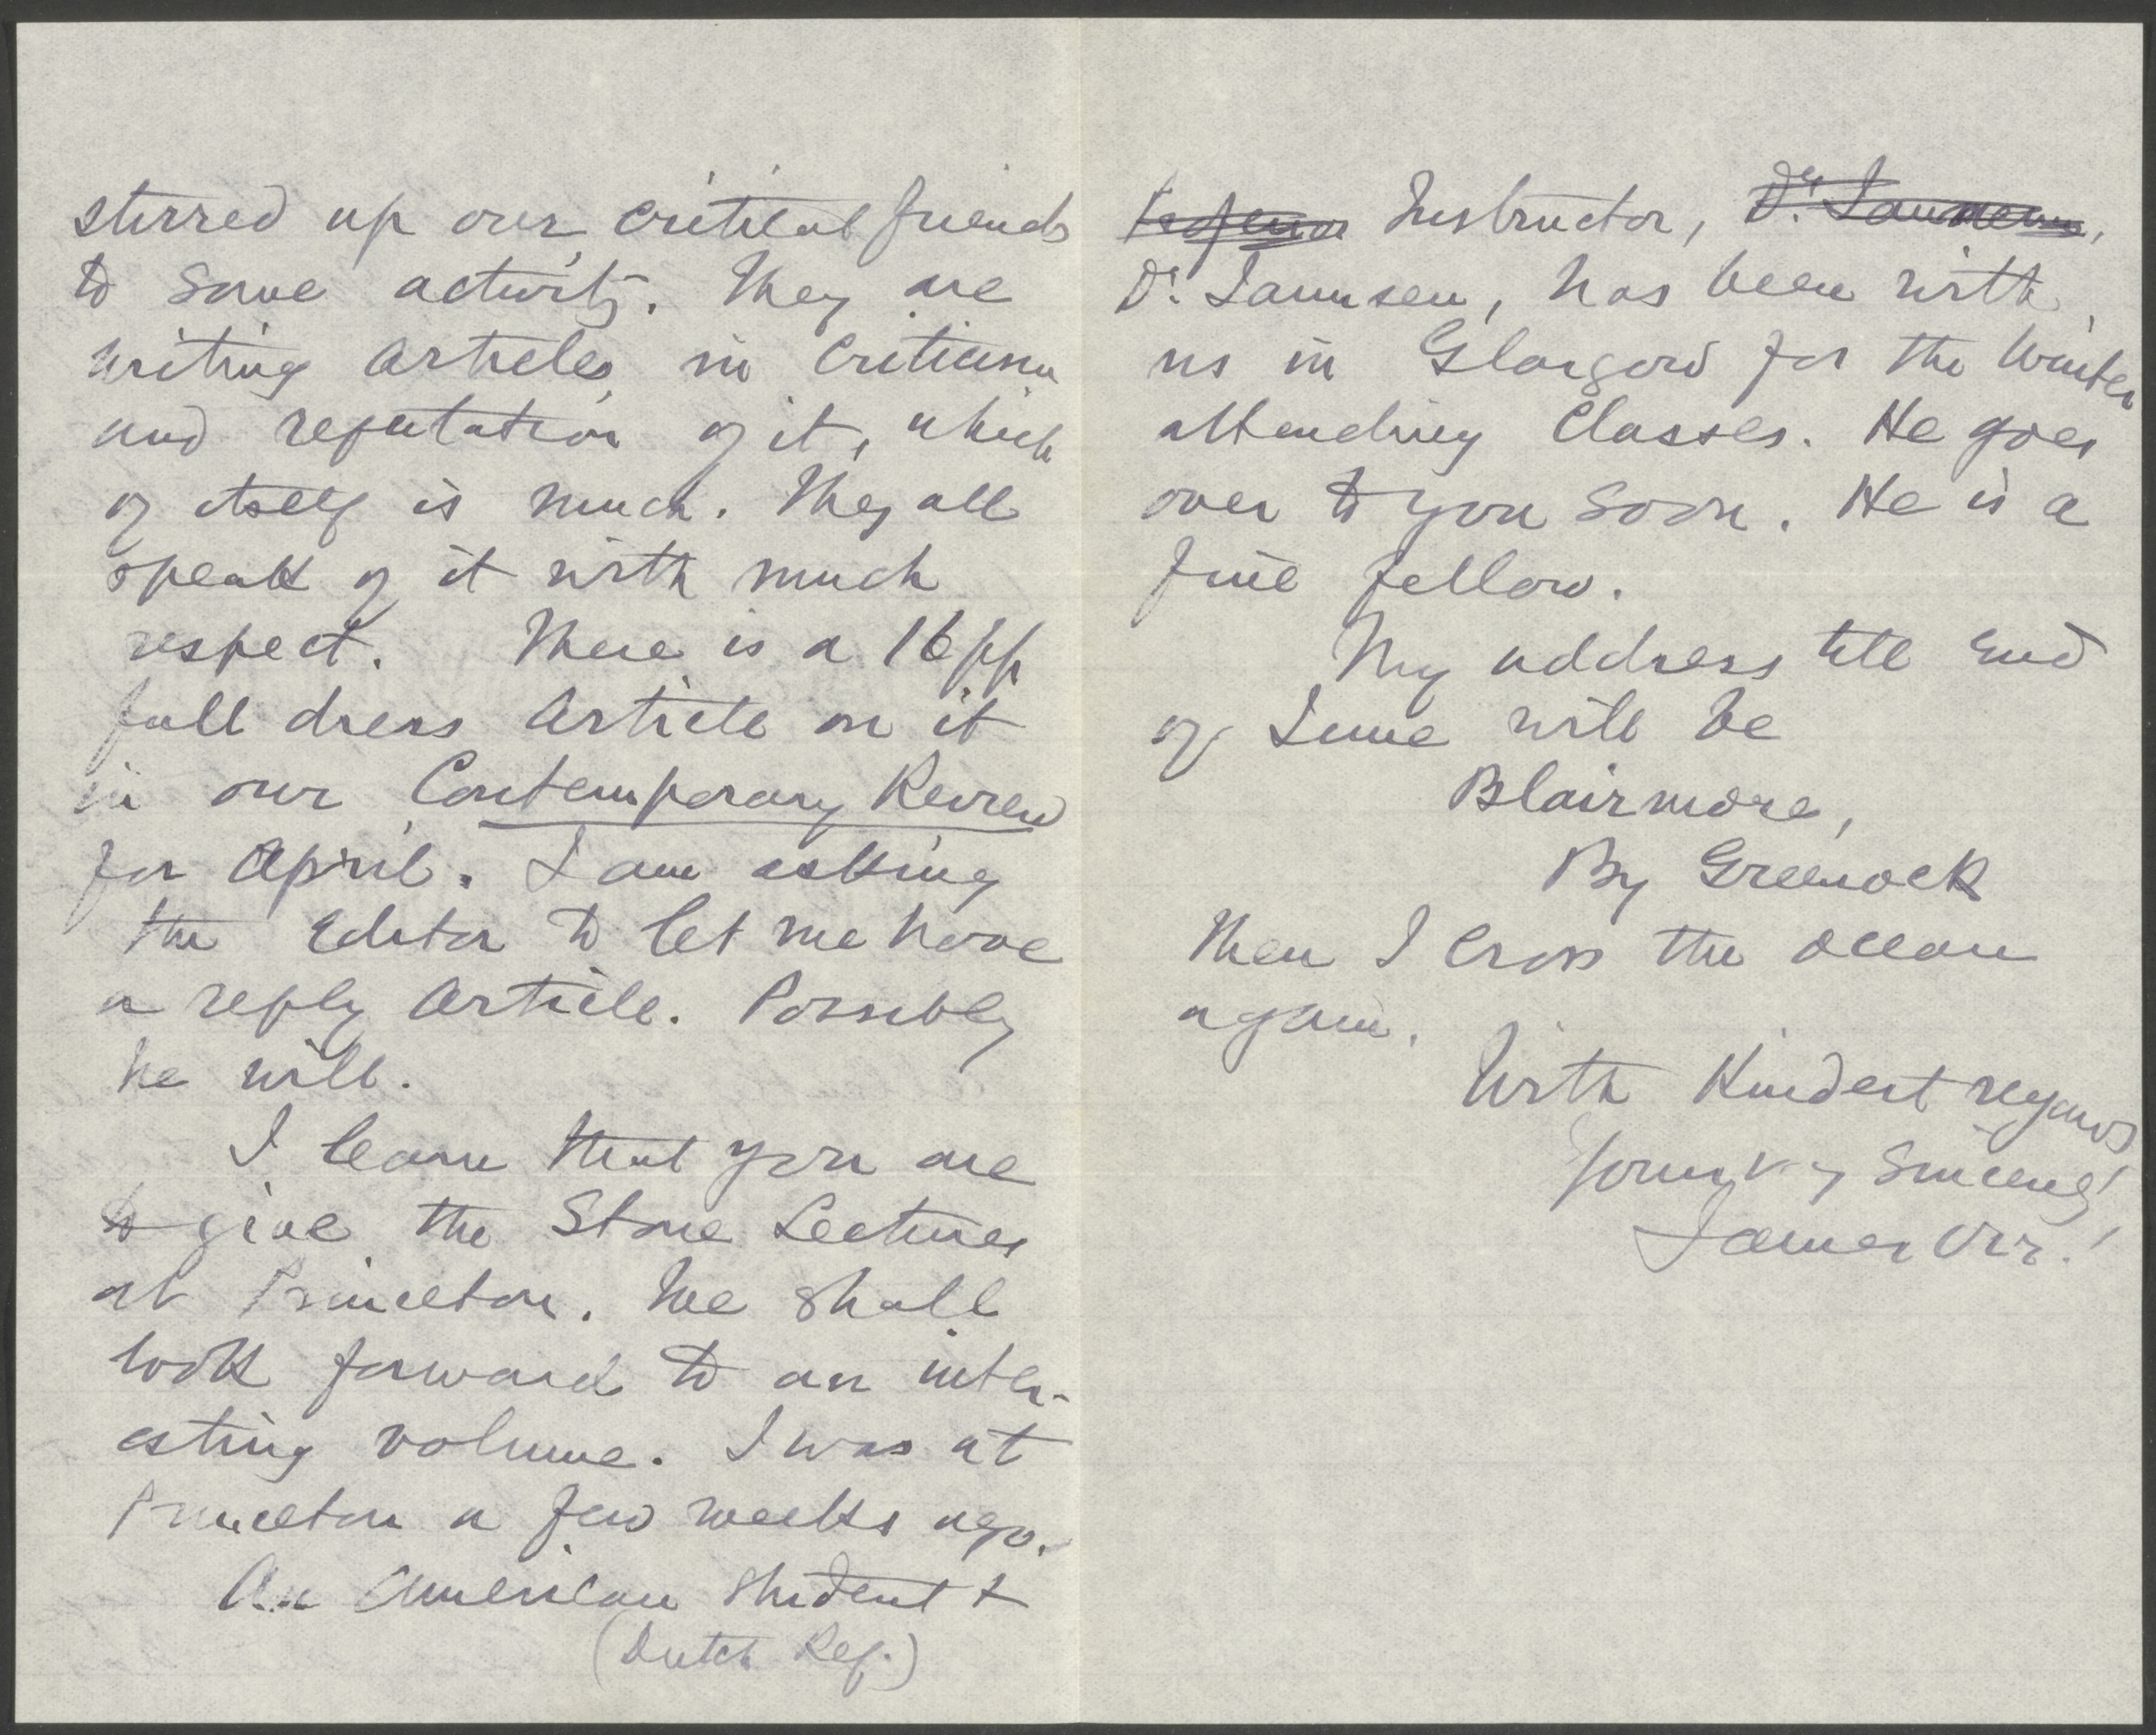 stirred up our critical friends
to some activity. They are
writing articles in criticism
and refutation of it, which
of itself is much. They all
speak of it with much
respect. There is a 16pp
full dress article on it
in our Contemporary Review
for April. I am asking
the Editor to let me have
a reply article. Possibly
he will.
I learn that you are
to give the Stone Lectures
at Princeton. We shall
look forward to an inter-
esting volume. I was at
Princeton a few weeks ago.
An American student &
(Dutch Ref.)
Instructor,
Dr. Jannsen, has been with
us in Glasgow for the Winter
attending Classes. He goes
over to you soon. He is a
fine fellow.
My address till end
of June will be
Blairmore,
By Greenock
Then I cross the ocean
again.
With Kindest regards
Yours v-y Sincerely
James Orr.